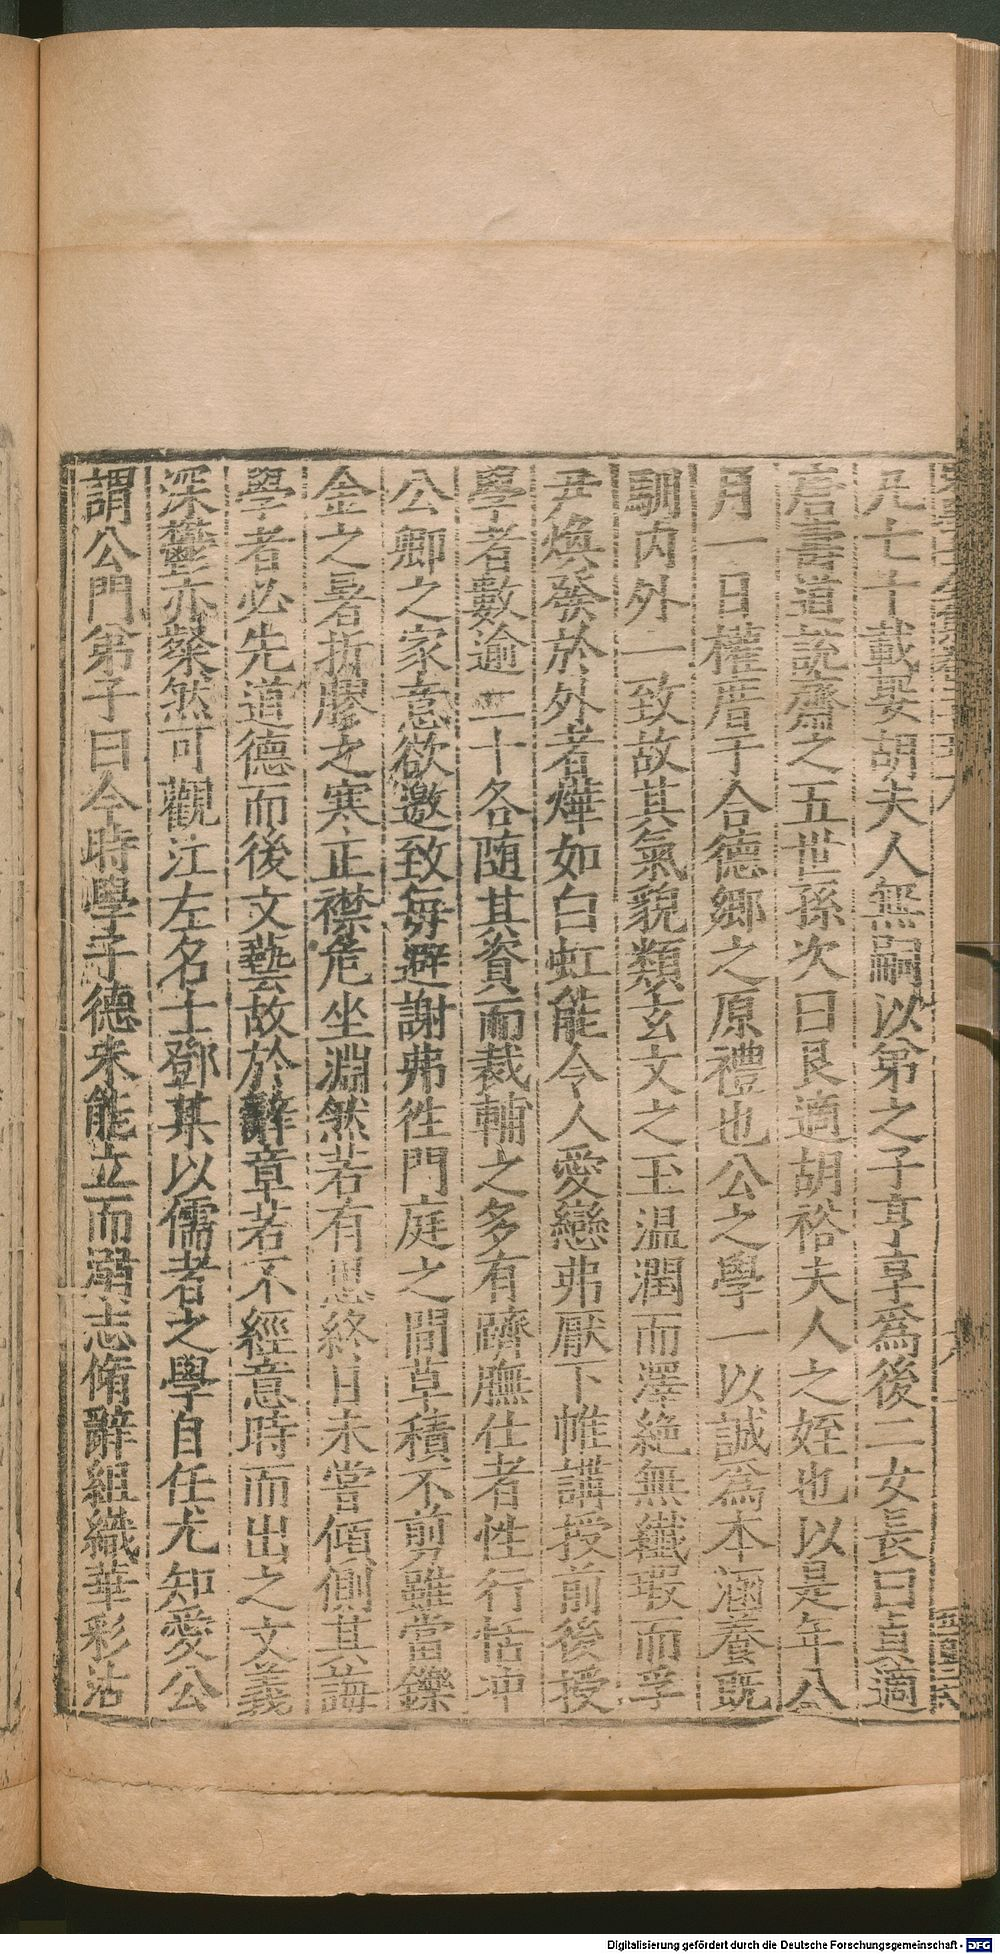 凡七十載娶胡夫人無嗣以弟之子亨亨爲後二女長曰貞適
唐壽道説齋之五世孫次曰艮適胡裕夫人之姪也以是年八
月一日權厝于合德鄉之原禮也公之學一以誠爲本涵養既
馴内外一致故其氣貌類玄文之玉温潤而澤絶無纖瑕而孚
尹煥發於外者燁如白虹能令人愛戀弗厭下帷講授前後授
學者數逾二十各随其資而裁輔之多有躋膴仕者性行恬冲
公卿之家意欲邀致每避謝弗徃門庭之間草積不剪雖當鑠
金之暑折膠之寒正襟危坐淵然若有思終日未嘗傾側其誨
學者必先道德而後文藝故於辭章若不經意時而出之文義
深鬱亦粲然可觀江左名士鄧某以儒者之學自任尤知愛公
謂公門弟子曰今時學子德未能立而溺志脩辭組織華彩沾
Digitalisierung gefördert durch die Deutsche Forschungsgemeinschaft - DFG